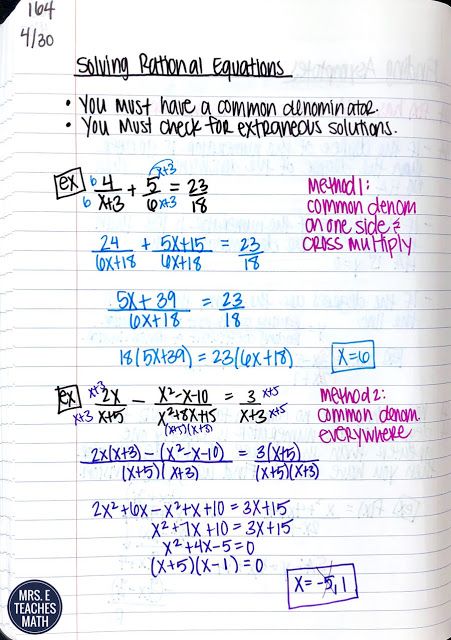 164
4/30
Solving Rational Equations
• You must have a common denominator.
• You must check for extraneous solutions.
ex 6 4/x+3 6 + 5 x+3/6 x+3 = 23/18
Method 1:
common denom
on one side &
cross multiply
24/6x+18 + 5x+15/6x+18 = 23/18
5x+39/6x+18 = 23/18
18(5x+39) = 23(6x+18)
x=6
ex x+3 2x/x+3 x+5 − x²-x-10/x²+8x+15 = 3 x+5/x+3 x+5
(x+5)(x+3)
Method 2:
common denom.
everywhere
2x(x+3) − (x²-x-10)/(x+5)(x+3) = 3(x+5)/(x+5)(x+3)
2x²+6x-x²+x+10=3x+15
x²+7x+10=3x+15
x²+4x-5=0
(x+5)(x-1)=0
x=-5,1
MRS. E
TEACHES
MATH